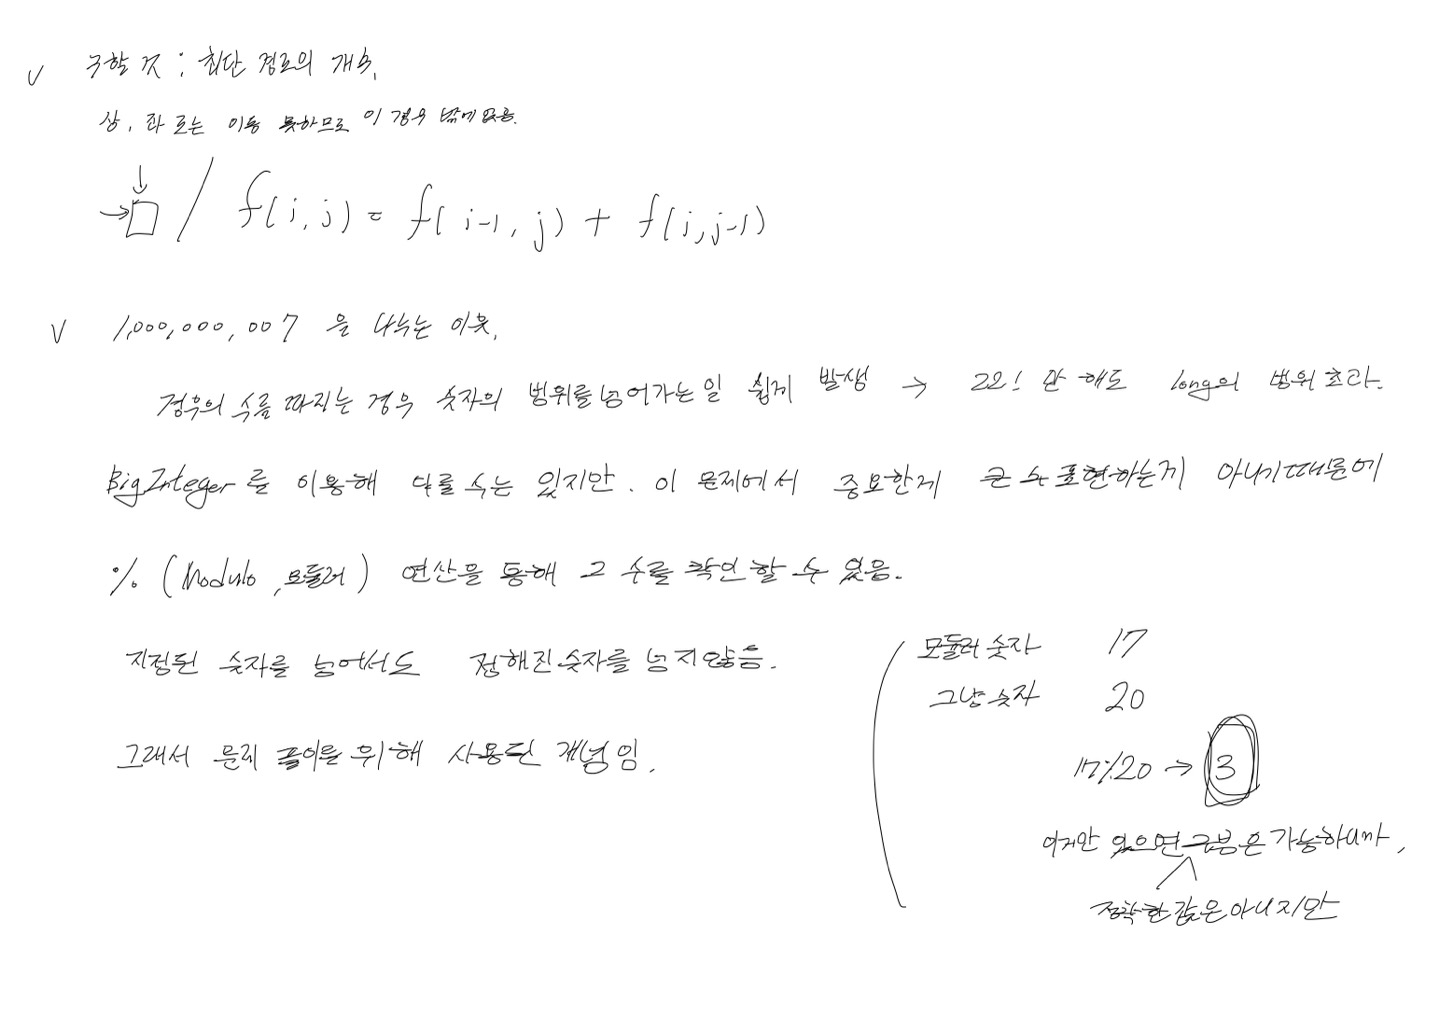 구할 것 : 최단 경로의 개수.
상, 좌 로는 이동 못하므로 이 경우 밖에 없음.
f(i, j) = f(i-1, j) + f(i, j-1)
1,000,000,007 을 나누는 이유.
경우의 수를 따지는 경우 숫자의 범위를 넘어가는 일 쉽게 발생 → 22! 만 해도 long의 범위 초과.
BigInteger를 이용해 다룰 수는 있지만. 이 문제에서 중요한게 큰 수 표현하는게 아니기 때문에
% (Modulo, 모듈러) 연산을 통해 그 수를 확인 할 수 있음.
지정된 숫자를 넘어서도 정해진 숫자를 넘지 않음.
그래서 문제 풀이를 위해 사용된 개념 임.
모듈러 숫자 17
그냥 숫자 20
17%20 → 3
이거만 있으면 구분은 가능하니까,
정확한 값은 아니지만